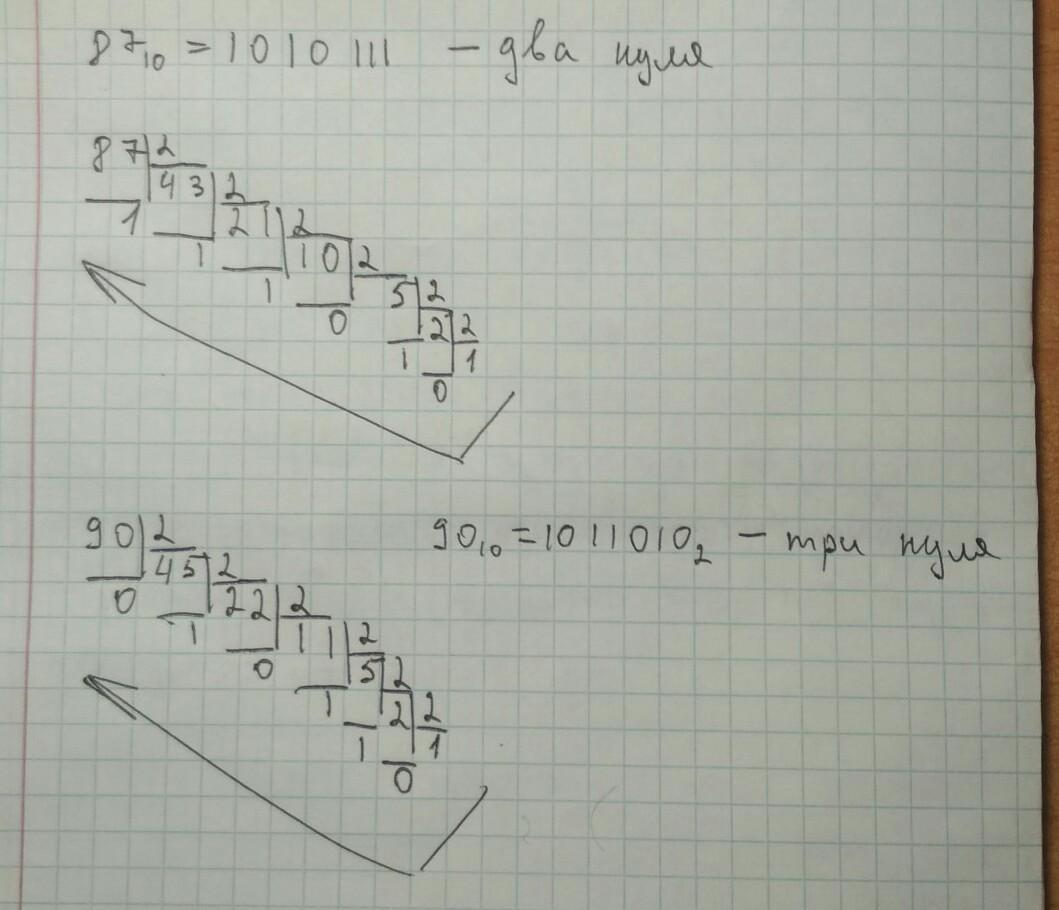 87₁₀ = 1010111 - два нуля
87 2
43 2
1 21 2
1 10 2
1 5 2
0 2 2
1 1
0
90 2 90₁₀ = 1011010₂ - три нуля
45 2
0 22 2
1 11 2
0 5 2
1 2 2
1 1
0